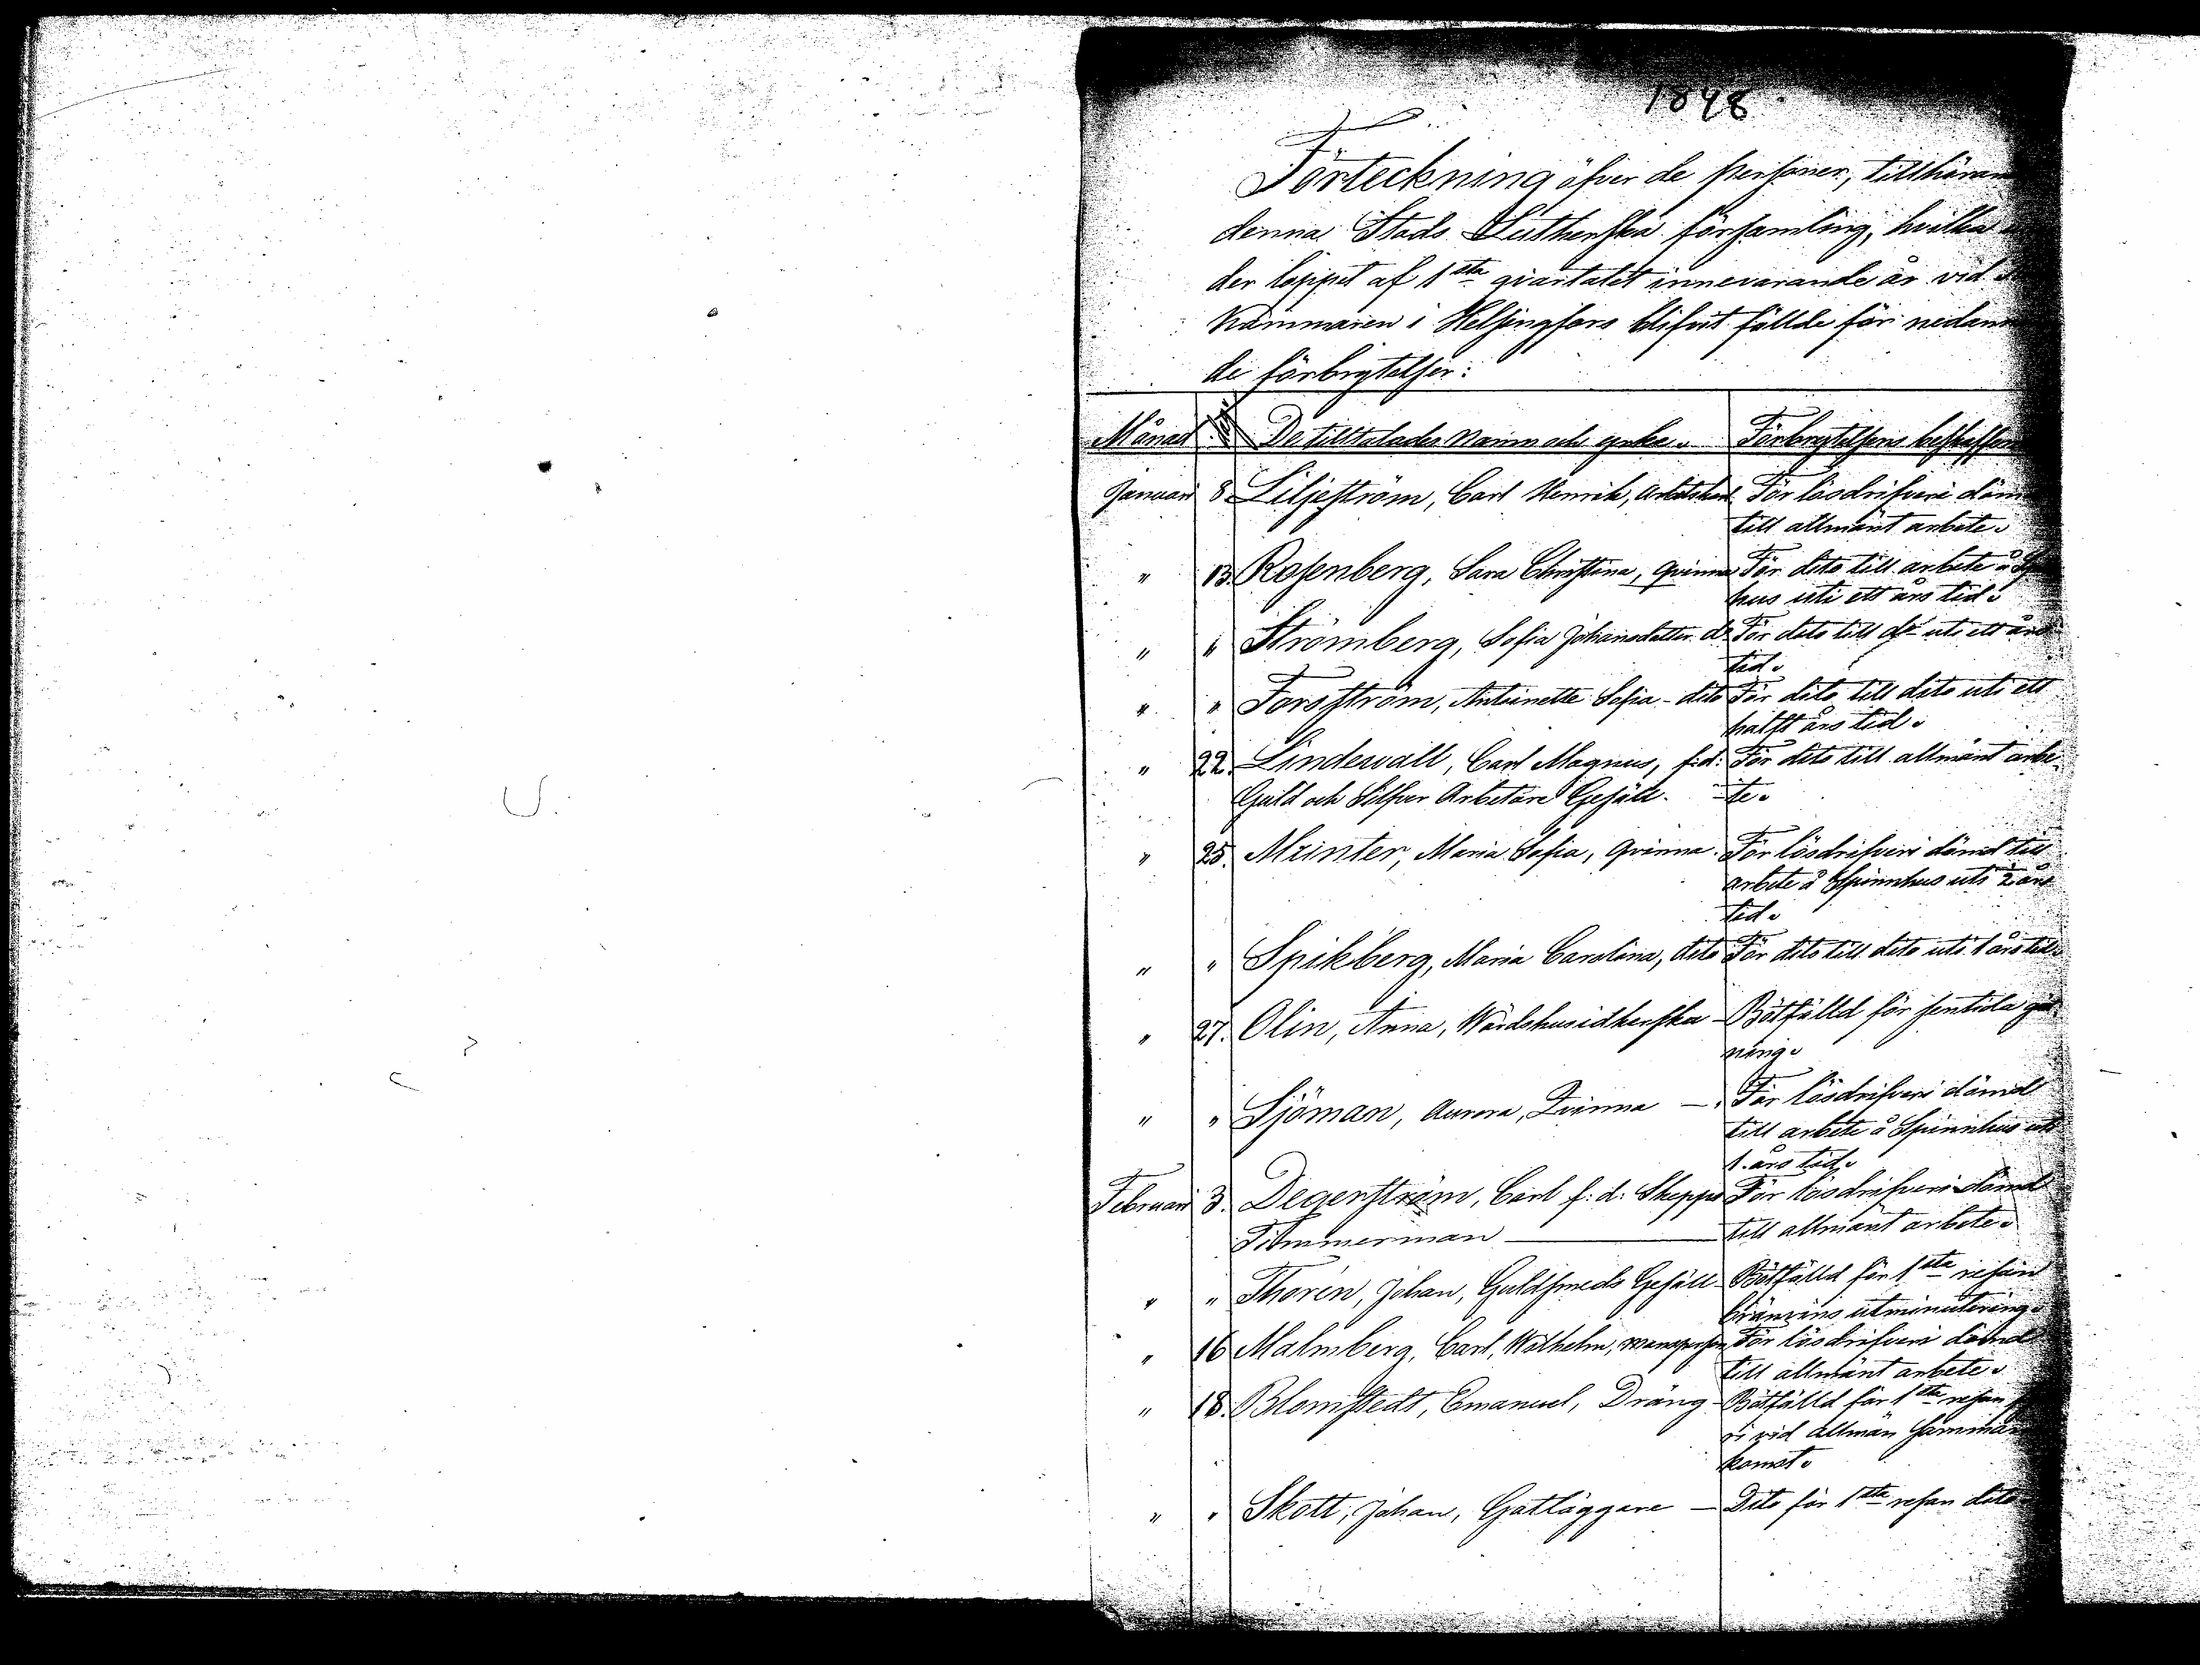 1848
Förteckning öfver de personer, tillhöran
denna Stads Lutherska församling, hvilka
der loppet af 1sta qvartalet innevarande år vid
Kämmaren i Helsingfors blifvit fällde för nedan
de förbrytelser:
Månad De tilltalades Namn och yrke. Förbrytelsens beskaffen
Januari 8. Liljeström, Carl Henrik, Arbetskarl För lösdrifveri dömd
till allmänt arbete.
" 13. Rosenberg, Sara Christina, Qvinna För dito till arbete å Spin
hus uti ett års tid.
" " Strömberg, Sofia Johansdotter do För dito till do uti ett års
tid.
" " Forsström, Antoinette Sofia - dito För dito till dito uti ett
halft års tid.
" 22. Lindewall, Carl Magnus, f.d. För dito till allmänt arbe-
Guld och Silfver Arbetare Gesäll - te.
" 25. Maria Sofia, Qvinna. För lösdrifveri dömd till
arbete å Spinnhus uti 2 års
tid.
" " Spikberg, Maria Carolina, dito För dito till dito uti 1 års tid.
" 27. Olin, Anna, Wärdshusidkerska - Bötfälld för sentida
ning.
" " Sjöman, Aurora, Qvinna - För lösdrifveri dömd
till arbete å Spinnhus uti
1. års tid.
Februari 3. Degerström, Carl f: d: Skepps För lösdrifveri dömd
Timmerman - till allmänt arbete.
" " Thorén, Johan, Guldsmeds Gesäll - Bötfälld för 1sta resan
bränvins utminutering.
" 16 Malmberg, Carl, Wilhelm, mansperson För lösdrifveri dömd
till allmänt arbete.
" 18. Blomstedt, Emanuel, Dräng - Bötfälld för 1sta resan
ri vid allmän samman
komst.
" " Skott, Johan, Gatläggare - Dito för 1sta resan dito